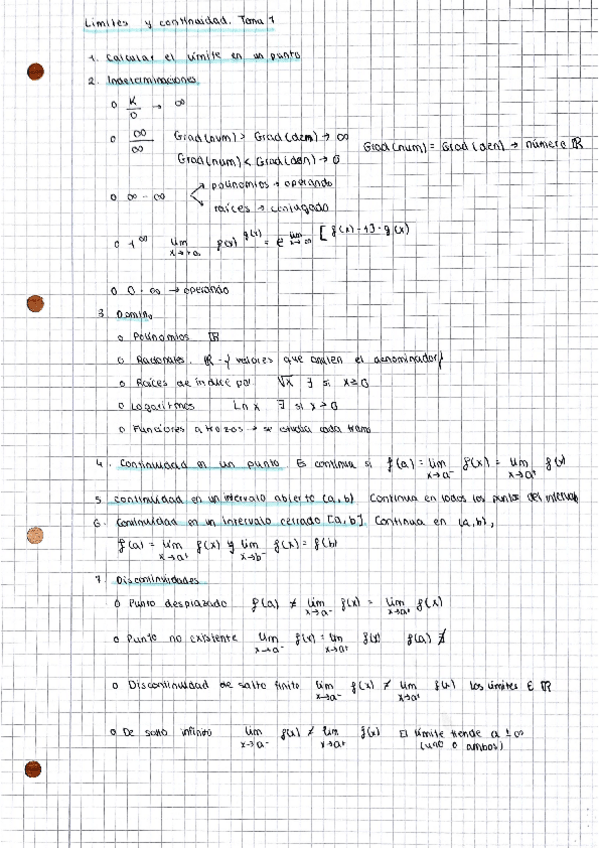 Límites y continuidad. Tema 7
1. Calcular el límite en un punto
2. Indeterminaciones
o K/0 → ∞
o ∞/∞ Grad(num) > Grad(dem) → ∞
Grad(num) < Grad(den) → 0
Grad(num) = Grad(den) → número ℝ
o ∞ - ∞ polinomios → operando
raíces → conjugado
o 1^∞ lim x→+∞ f(x)^g(x) = e^lim x→∞ [f(x) - 1] · g(x)
o 0 · ∞ → operando
3. Dominio
o Polinomios ℝ
o Racionales. ℝ - {valores que anulen el denominador}
o Raíces de índice par √x ∃ si x ≥ 0
o Logaritmos Ln x ∃ si x > 0
o Funciones a trozos → se estudia cada tramo
4. Continuidad en un punto. Es continua si f(a) = lim x→a⁻ f(x) = lim x→a⁺ f(x)
5. Continuidad en un intervalo abierto (a,b) Continua en todos los puntos del intervalo
6. Continuidad en un intervalo cerrado [a,b]. Continua en (a,b),
f(a) = lim x→a⁺ f(x) y lim x→b⁻ f(x) = f(b)
7. Discontinuidades
o Punto desplazado f(a) ≠ lim x→a⁻ f(x) = lim x→a⁺ f(x)
o Punto no existente lim x→a⁻ f(x) = lim x→a⁺ f(x) f(a) ∄
o Discontinuidad de salto finito lim x→a⁻ f(x) ≠ lim x→a⁺ f(x) los límites ∈ ℝ
o De salto infinito lim x→a⁻ f(x) ≠ lim x→a⁺ f(x) El límite tiende a ±∞
(uno o ambos)